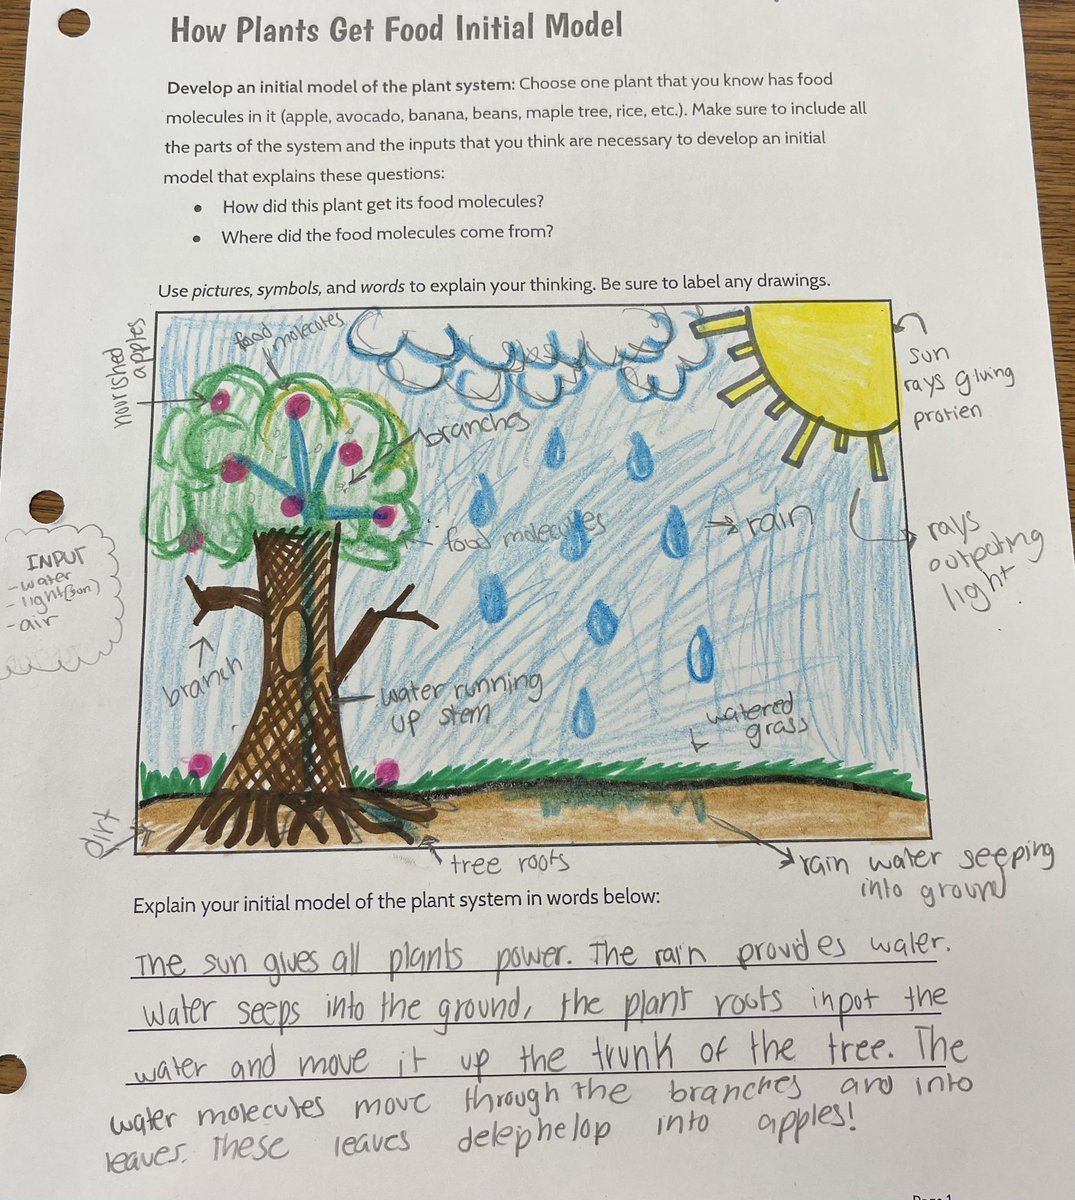 How Plants Get Food Initial Model
Develop an initial model of the plant system: Choose one plant that you know has food
molecules in it (apple, avocado, banana, beans, maple tree, rice, etc.). Make sure to include all
the parts of the system and the inputs that you think are necessary to develop an initial
model that explains these questions:
• How did this plant get its food molecules?
• Where did the food molecules come from?
Use pictures, symbols, and words to explain your thinking. Be sure to label any drawings.
nourished
apples
food molecules
branches
sun
rays giving
protien
food molecules
rain
rays
outpoting
light
INPUT
-water
-light(sun)
-air
branch
water running
up stem
watered
grass
dirt
tree roots
rain water seeping
into ground
Explain your initial model of the plant system in words below:
The sun gives all plants power. The rain provides water.
Water seeps into the ground, the plant roots inpot the
water and move it up the trunk of the tree. The
water molecules move through the branches and into
leaves. These leaves delephelop into apples!